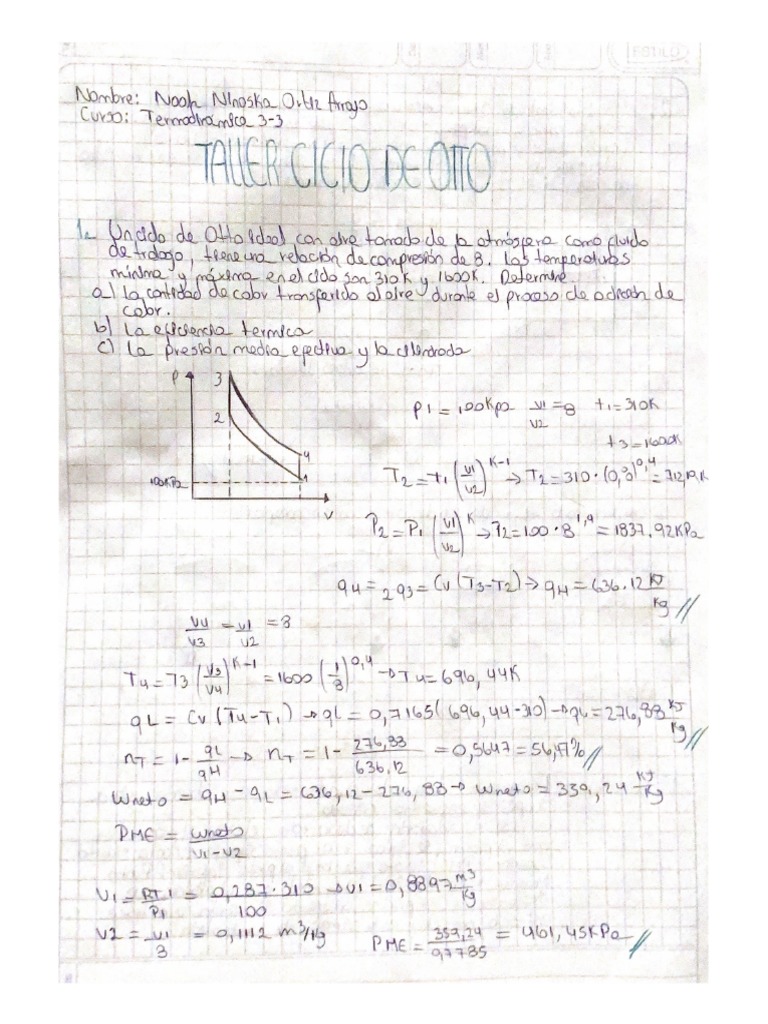 ESTILO
Nombre: Noah Ninoska Ortiz Arroyo
Curso: Termodinamica 3-3
TALLER CICLO DE OTTO
1. Un ciclo de Otto ideal con aire tomado de la atmósfera como fluido
de trabajo, tiene una relación de compresión de 8. Las temperaturas
minima y máxima en el ciclo son 310K y 1600K. Determine
a) La cantidad de calor transferido al aire durante el proceso de adicion de
calor.
b) La eficiencia termica
c) La presión media efectiva y la cilindrada
P 3
2
4
100KPa 1
V
P1 = 100KPa v1/v2 = 8 t1 = 310K
t3 = 1600K
T2 = t1 (v1/v2)^K-1 → T2 = 310 · (8)^0,4 = 712,19K
P2 = P1 (v1/v2)^K → P2 = 100 · 8^1,4 = 1837,92KPa
qH = 2q3 = Cv (T3-T2) → qH = 636.12 KJ/Kg //
V4/V3 = v1/v2 = 8
T4 = T3 (V3/V4)^K-1 = 1600 (1/8)^0,4 → T4 = 696,44K
qL = Cv (T4-T1) → qL = 0,7165 (696,44-310) → qL = 276,88 KJ/Kg //
nT = 1 - qL/qH → nT = 1 - 276,88/636,12 = 0,5647 = 56,47% //
Wneto = qH - qL = 636,12 - 276,88 → Wneto = 359,24 KJ/Kg
PME = Wneto/V1-V2
V1 = RT1/P1 = 0,287·310/100 → v1 = 0,8897 m³/Kg
V2 = v1/8 = 0,1112 m³/Kg PME = 359,24/0,7785 = 461,45KPa //